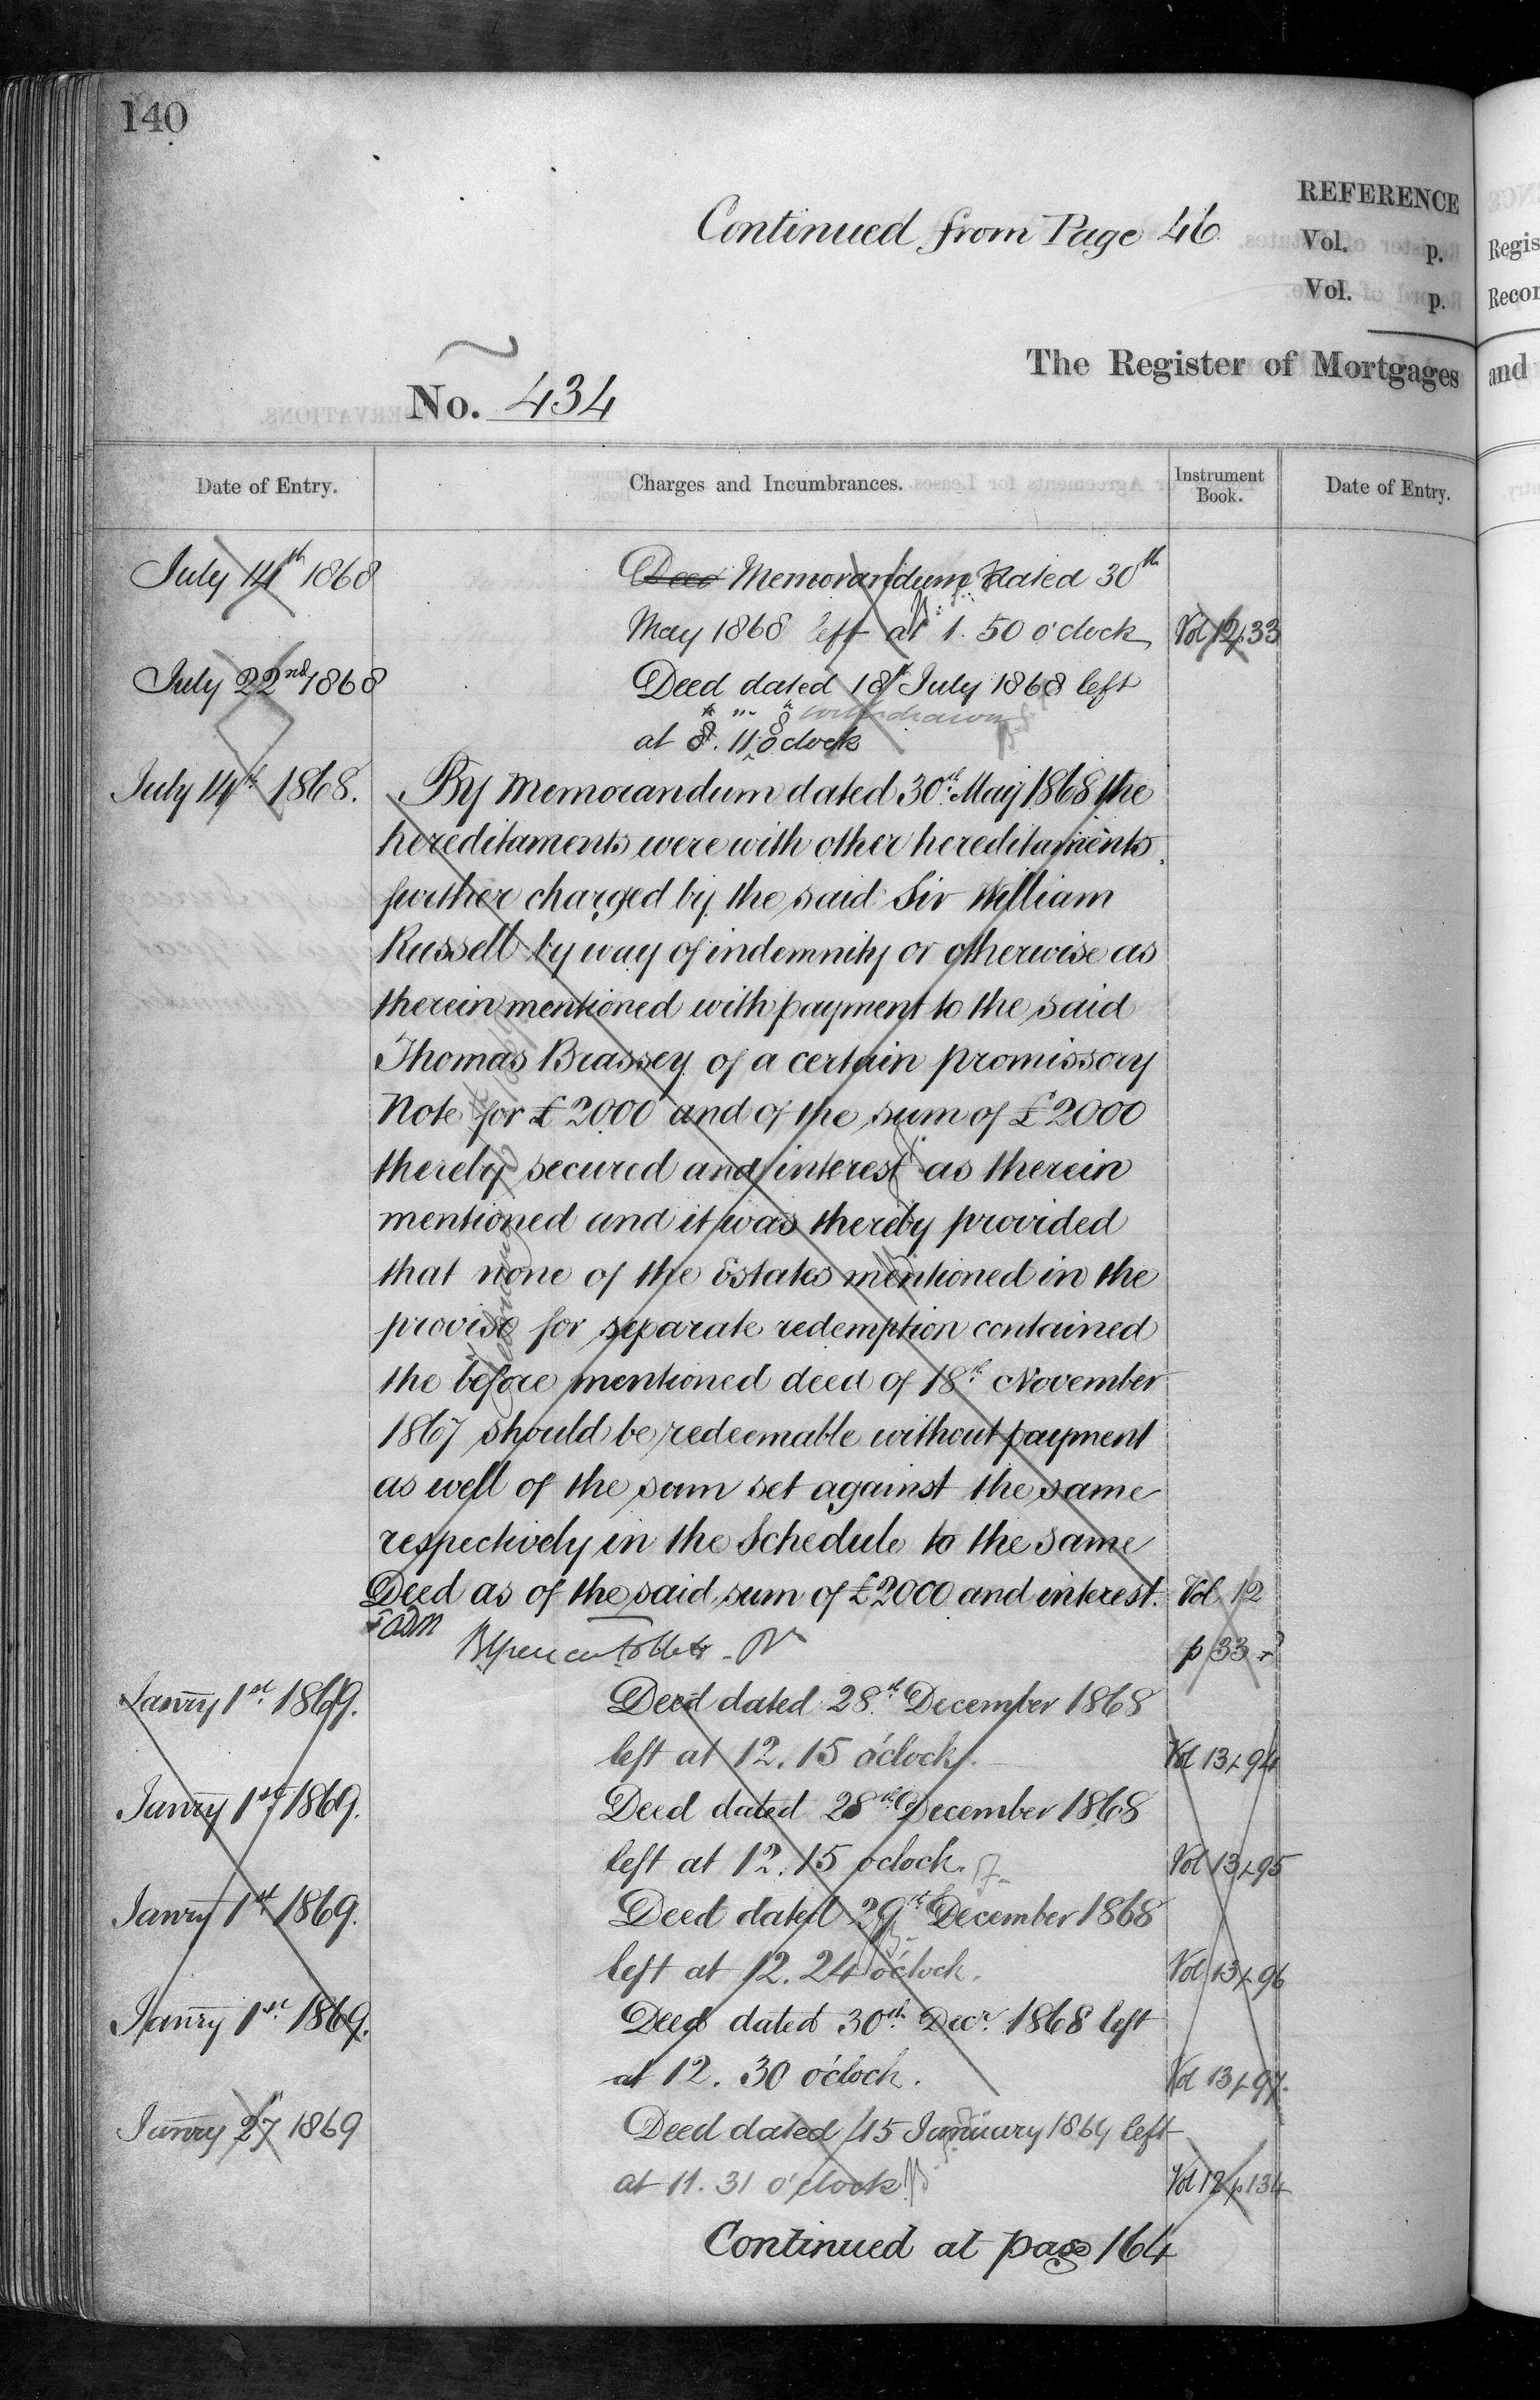 140
Continued from Page 46
REFERENCE
Vol. p.
Vol. p.
The Register of Mortgages
No. 434
Date of Entry. Charges and Incumbrances. Instrument Book. Date of Entry.
July 14th 1868 Deed Memorandum dated 30th
May 1868 left at 1.50 o'clock Vol 12 p 33
July 22nd 1868 Deed dated 18th July 1868 left
withdrawn
at 8. 11 o'clock
July 14th 1868. By Memorandum dated 30th May 1868 the
hereditaments were with other hereditaments
further charged by the said Sir William
Russell by way of indemnity or otherwise as
therein mentioned with payment to the said
Thomas Brassey of a certain promissory
Note for £2000 and of the sum of £2000
thereby secured and interest as therein
mentioned and it was thereby provided
that none of the Estates mentioned in the
proviso for separate redemption contained
the before mentioned deed of 18th November
1867 should be redeemable without payment
as well of the sum set against the same
respectively in the Schedule to the same
Deed as of the said sum of £2000 and interest. Vol 12
p 33
Janry 1st 1869. Deed dated 28th December 1868
left at 12.15 o'clock. Vol 13 p 94
Janry 1st 1869. Deed dated 28th December 1868
left at 12.15 oclock. Vol 13 p 95
Janry 1st 1869. Deed dated 29th December 1868
left at 12.24 o'clock. Vol 13 p 96
Janry 1st 1869. Deed dated 30th Decr. 1868 left
at 12.30 o'clock. Vol 13 p 97.
Janry 27 1869 Deed dated 15 January 1869 left
at 11.31 o'clock Vol 12 p 134
Continued at page 164
Regis
Recor
and